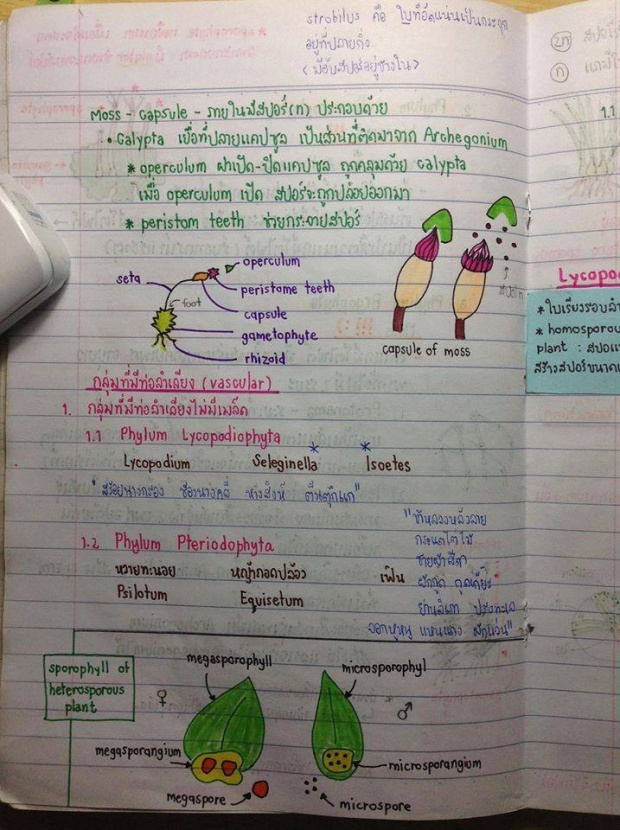 strobilus คือ ใบที่อัดแน่นเป็นกระจุก
อยู่ที่ปลายกิ่ง
< มีอับสปอร์อยู่ข้างใน >
Moss - capsule - ภายในมีสปอร์(n) ประกอบด้วย
• Calypta เยื่อที่ปลายแคปซูล เป็นส่วนที่ติดมาจาก Archegonium
* operculum ฝาเปิด-ปิดแคปซูล ถูกคลุมด้วย calypta
เมื่อ operculum เปิด สปอร์จะถูกปล่อยออกมา
* peristom teeth ช่วยกระจายสปอร์
operculum
seta
peristome teeth
foot
capsule
gametophyte
rhizoid
capsule of moss
กลุ่มที่มีท่อลำเลียง (vascular)
1. กลุ่มที่มีท่อลำเลียงไม่มีเมล็ด
1.1 Phylum Lycopodiophyta
Lycopodium Seleginella* *Isoetes
"สร้อยนางกรอง ช้องนางคลี่ หางสิงห์ ตีนตุ๊กแก"
1.2 Phylum Pteriodophyta
หวายทะนอย หญ้าถอดปล้อง เฟิน
Psilotum Equisetum
"ข้าหลวงหลังลาย
กระแตไต่ไม้
ชายผ้าสีดา
ผักกูด กูดเกี๊ยะ
ย่านลิเภา ปรงทะเล
จอกหูหนู แหนแดง ผักแว่น"
sporophyll of
heterosporous
plant
megasporophyll
♀
megasporangium
megaspore
microsporophyl
♂
microsporangium
microspore
2n
n
1.1
Lycopo
* ใบเรียงรอบลำ
* homosporou
plant : สปอ
สร้างสปอร์ขนาด